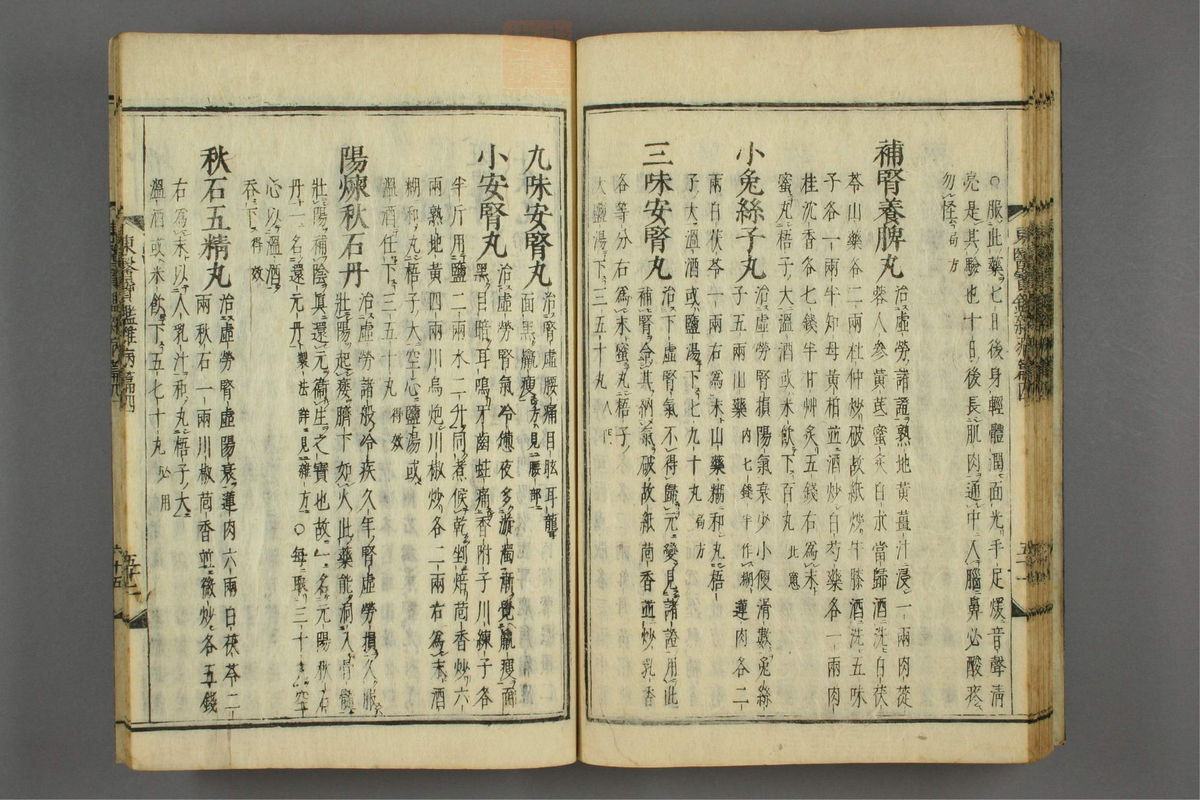 ○服此藥七日後身輕體潤面光手足煖音聲清
亮是其驗也十日後長肌肉通中入腦鼻必酸疼
勿怪局方
補腎養脾丸 治虛勞諸證熟地黃薑汁浸一兩肉蓯
蓉人參黃芪蜜炙白朮當歸酒洗白茯
苓山藥各二兩杜仲炒破故紙炒牛膝酒洗五味
子各一兩半知母黃栢並酒炒白芍藥各一兩肉
桂沈香各七錢半甘艸炙五錢右爲末
蜜丸梧子大溫酒或米飮下百丸
小兔絲子丸 治虛勞腎損陽氣衰少小便滑數兔絲
子五兩山藥二兩內七錢半作糊蓮肉各二
兩白茯苓一兩右爲末山藥糊和丸梧
子大溫酒或鹽湯下七九十丸局方
三味安腎丸 治下虛腎氣不得歸元變見諸證用此
補腎令其納氣破故紙茴香並炒乳香
各等分右爲末蜜丸梧子
大鹽湯下三五十丸
九味安腎丸 治腎虛腰痛目眩耳聾
面黑羸瘦方見腰部
小安腎丸 治虛勞腎氣冷憊夜多漩濁漸覺羸瘦面
黑目暗耳鳴牙齒蛀痛香附子川練子各
半斤用鹽二兩水二升同煮候乾剉焙茴香炒六
兩熟地黃四兩川烏炮川椒炒各二兩右爲末酒
糊和丸梧子大空心鹽湯或
溫酒任下三五十丸得效
陽煉秋石丹 治虛勞諸般冷疾久年腎虛勞損久服
壯陽起痿臍下如火此藥能洞入骨髓
壯陽補陰眞還元衛生之寶也故一名元陽秋石
丹一名還元丹製法詳見雜方○每取三十丸空
心以溫酒
呑下得效
秋石五精丸 治虛勞腎虛陽衰蓮肉六兩白茯苓二
兩秋石一兩川椒茴香並微炒各五錢
右爲末以人乳汁和丸梧子大
溫酒或米飮下五七十丸必用
東醫寶鑑雜病篇四